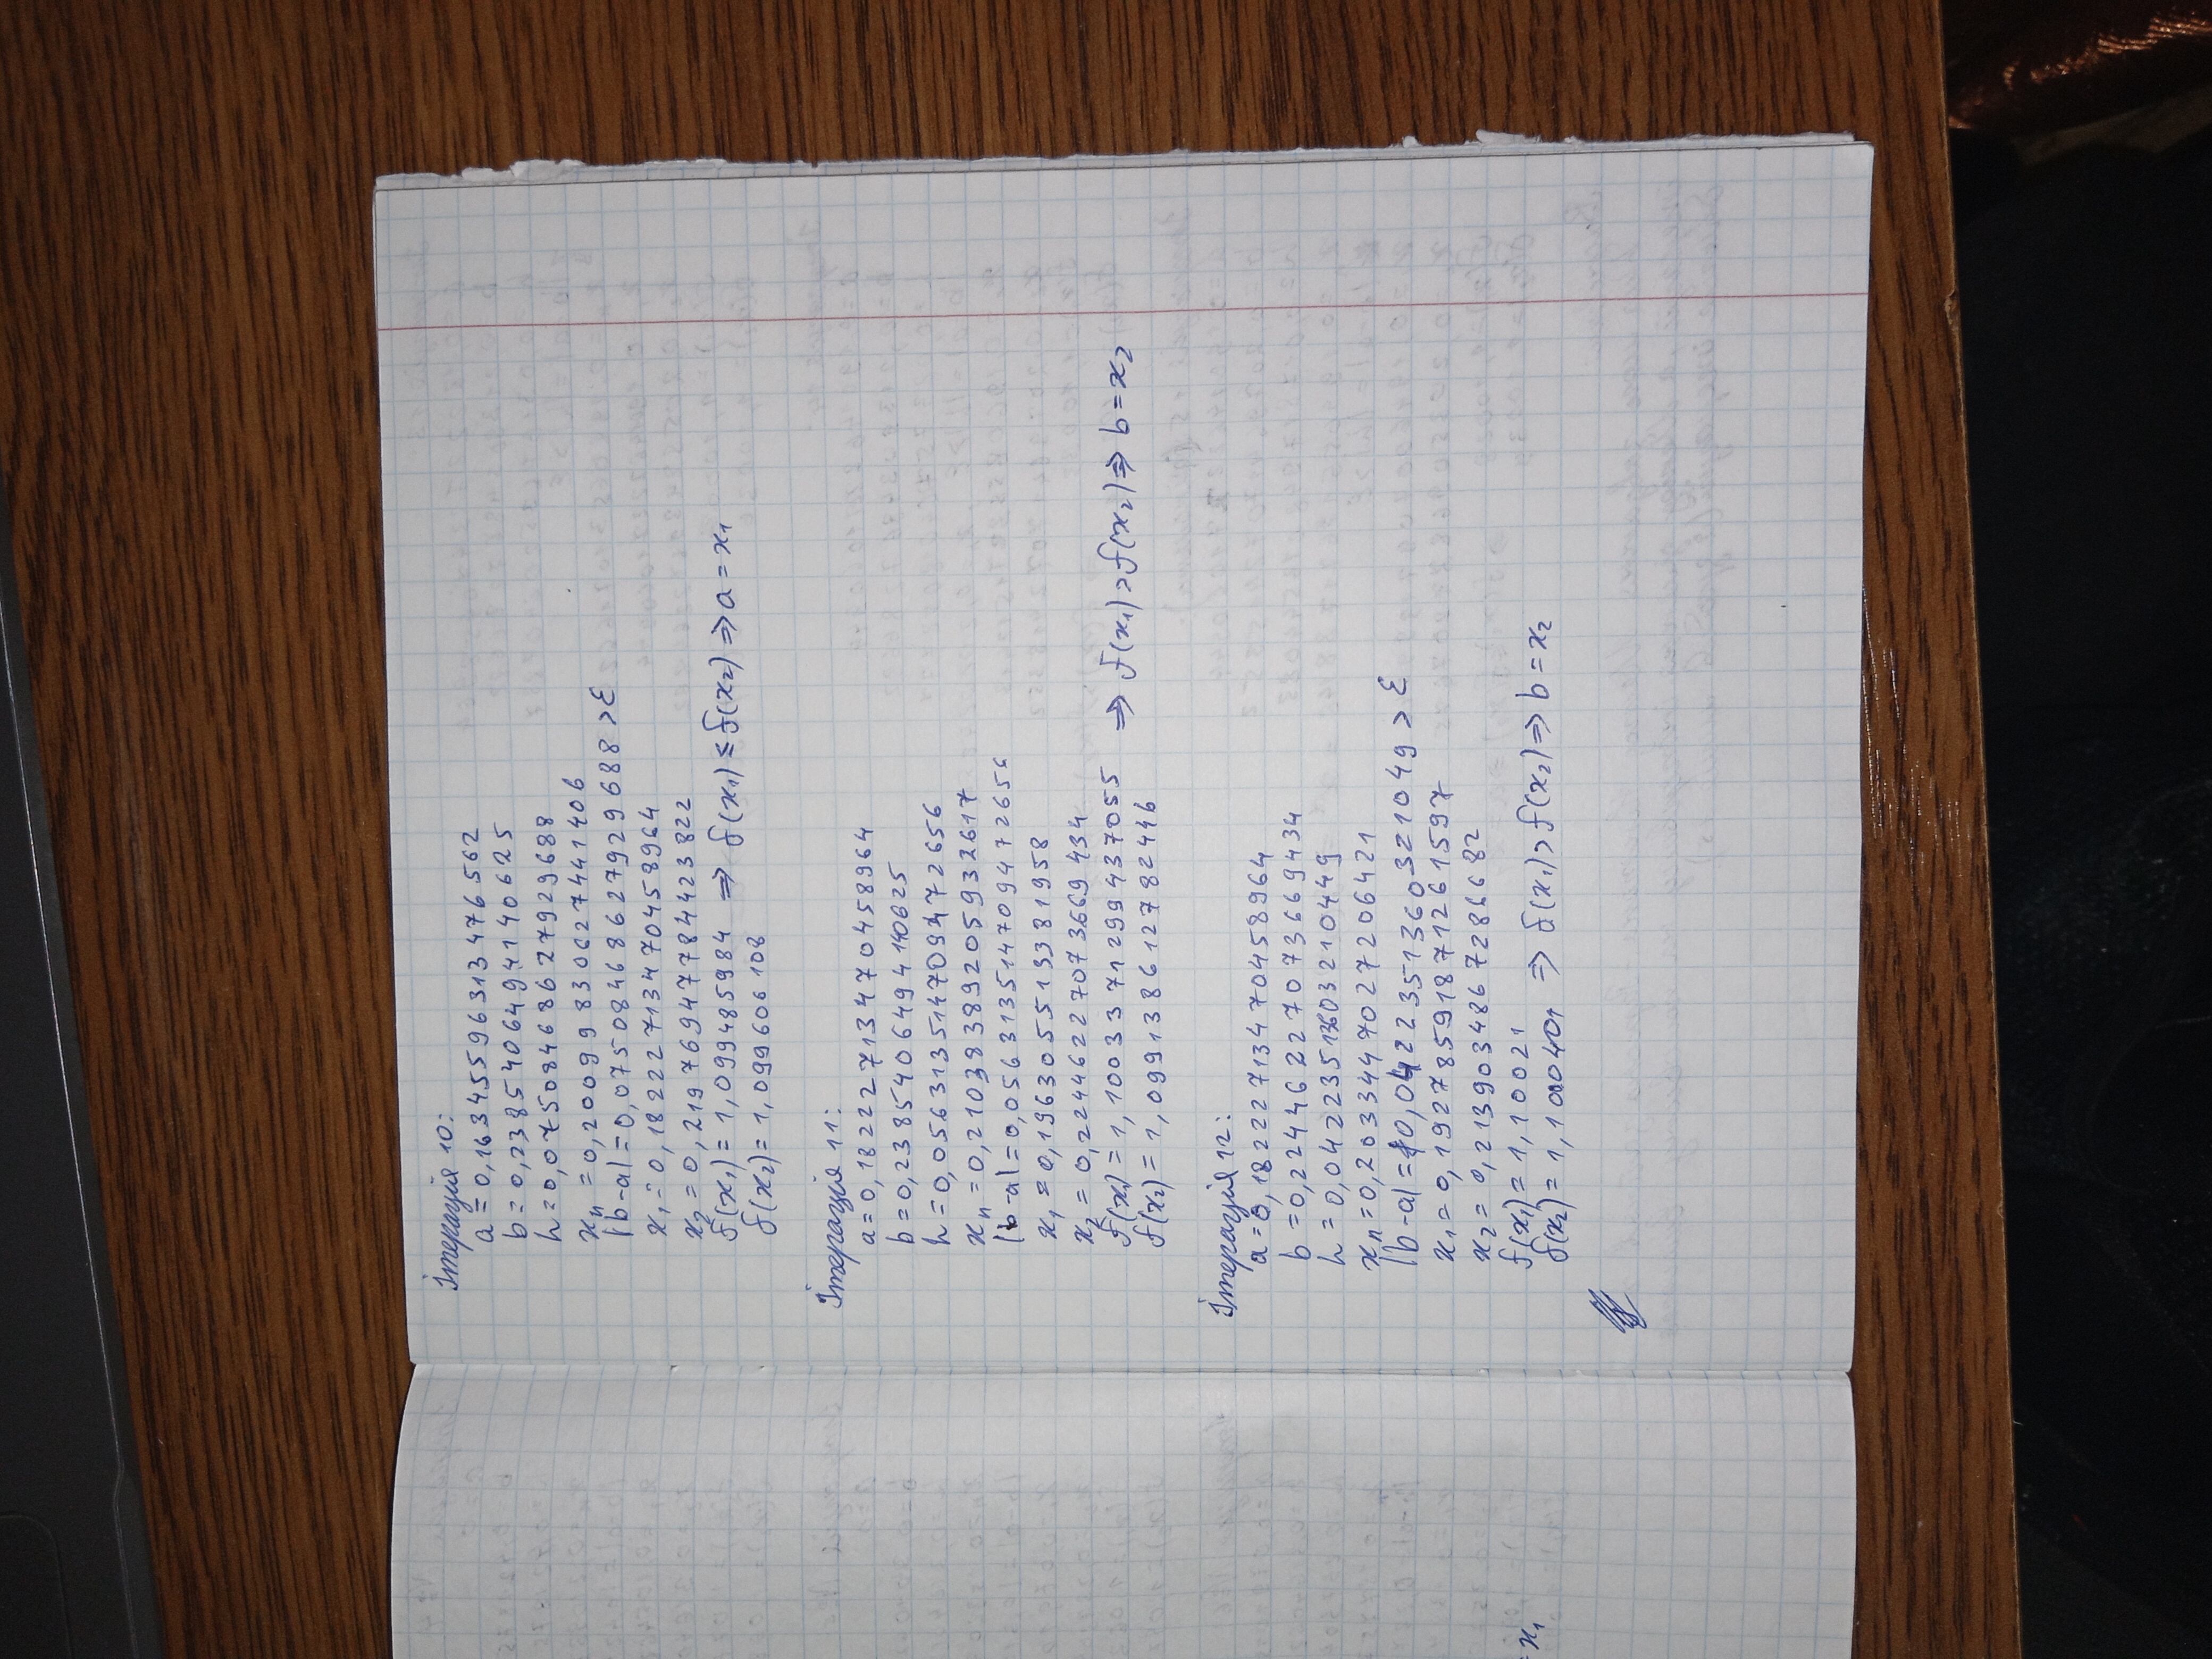 = x₁
Ітерація 10:
a = 0,16345596313476562
b = 0,2385406494140625
h = 0,07508468627929688
xₙ = 0,20099830627441406
|b-a| = 0,07508468627929688 > ε
x₁ = 0,18222713470458964
x₂ = 0,21976947784423822
f(x₁) = 1,099485984 ⇒ f(x₁) ≤ f(x₂) ⇒ a = x₁
f(x₂) = 1,099606108
Ітерація 11:
a = 0,18222713470458964
b = 0,2385406494140625
h = 0,056313514709472656
xₙ = 0,21038389205932617
|b-a| = 0,05631351470947265
x₁ = 0,196305513381958
x₂ = 0,22446227073669434
f(x₁) = 1,10033712999437055 ⇒ f(x₁) > f(x₂) ⇒ b = x₂
f(x₂) = 1,099138612782446
Ітерація 12:
a = 0,18222713470458964
b = 0,22446227073669434
h = 0,0422351360321044 9
xₙ = 0,2033447027206421
|b-a| = 0,04223513603210449 > ε
x₁ = 0,19278591871261597
x₂ = 0,2139034867286682
f(x₁) = 1,10021
f(x₂) = 1,100401 ⇒ f(x₁) > f(x₂) ⇒ b = x₂